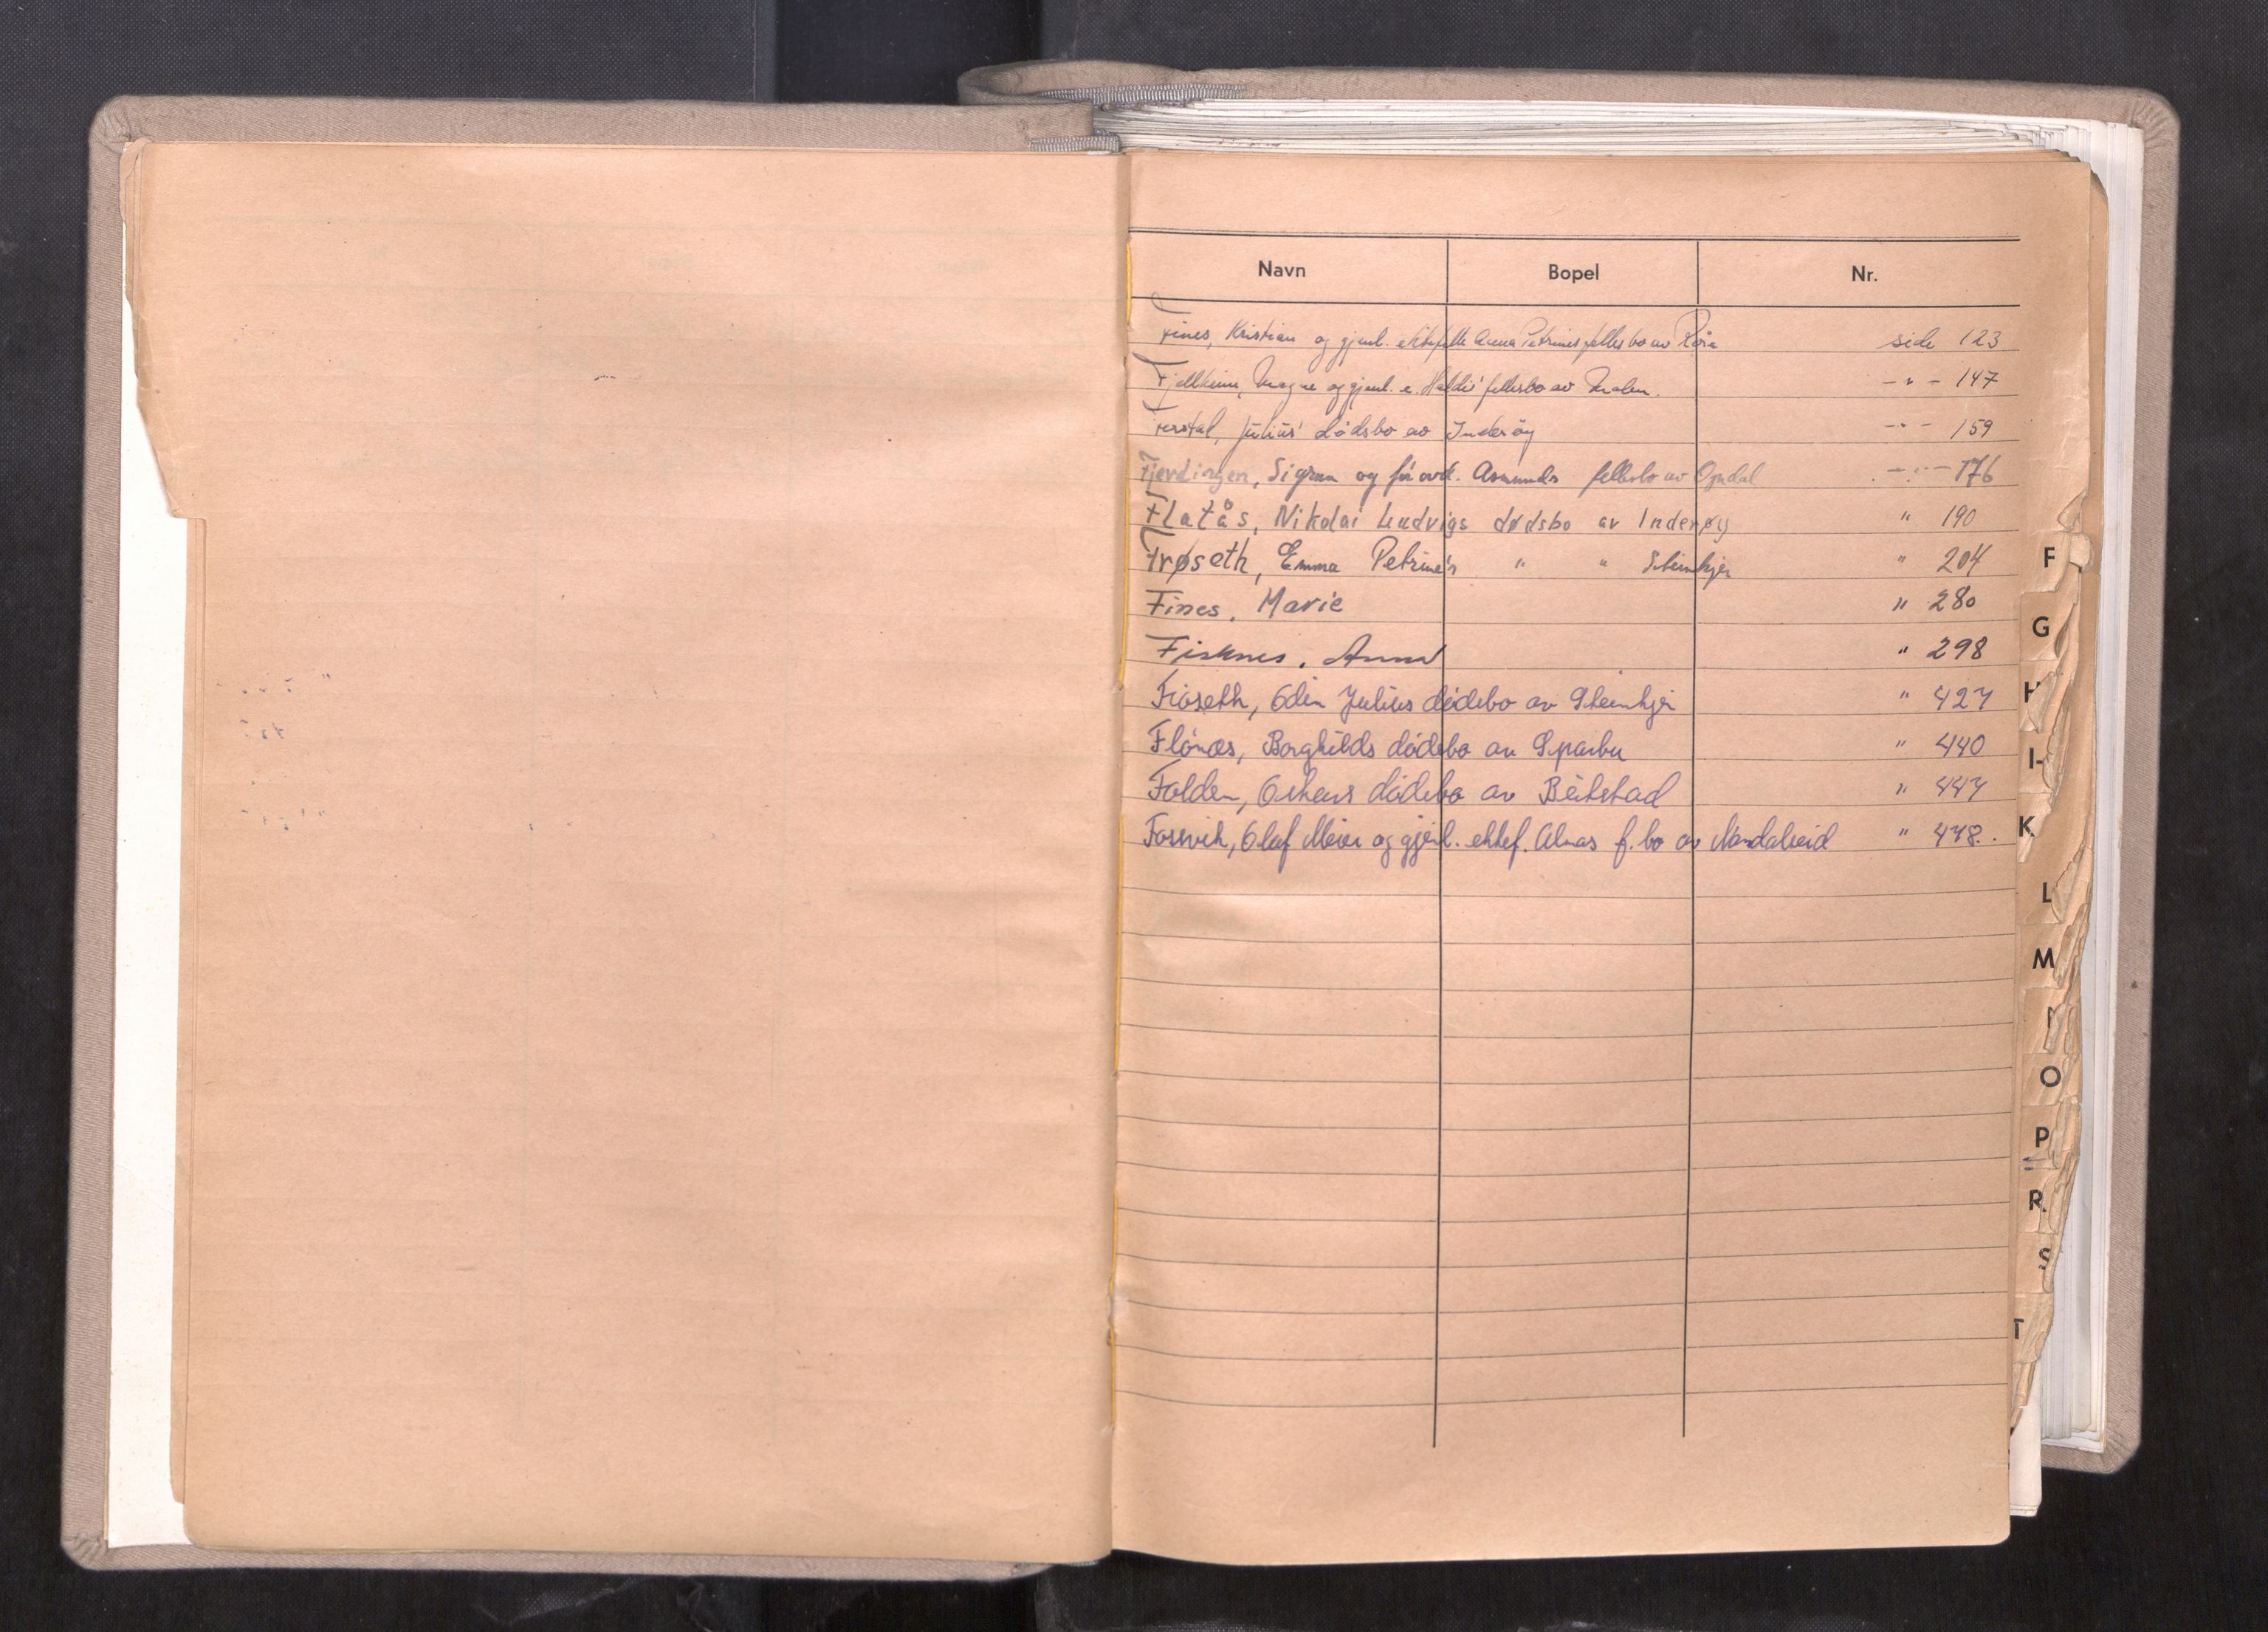 Navn Bopel Nr.
Fines, Kristian og gjenl. ektefelle Anna Petrines fellesbo av Røra side 123
Fjellheim, Magne og gjenl. e. fellesbo av Malm. - " - 147
Ferstal, Julius' dødsbo av Inderøy - " - 159
Fjerdingen, Sigrun og forsvd. Asmunds fellesbo av Ogndal - " - 176
Flatås, Nikolai Ludvigs dødsbo av Inderøy " 190
Frøseth, Emma Petrine's " " Steinkjer " 204
Fines, Marie " 280
Fisknes, Anna " 298
Fioseth, Odin Julius dødsbo av Steinkjer " 427
Flønæs, Borghilds dødsbo av Sparbu " 440
Folden, Oskars dødsbo av Beitstad " 447
Fossvik, Olaf Meier og gjenl. ektef. Almas f.bo av Namdalseid " 478.
F
G
H
I-
K
L
M
O
P
R
S
T